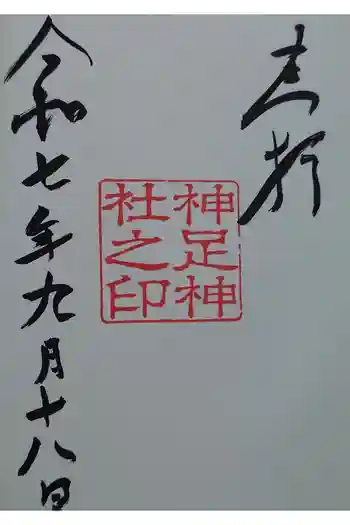 奉拝
神足神
社之印
令和七年九月十八日